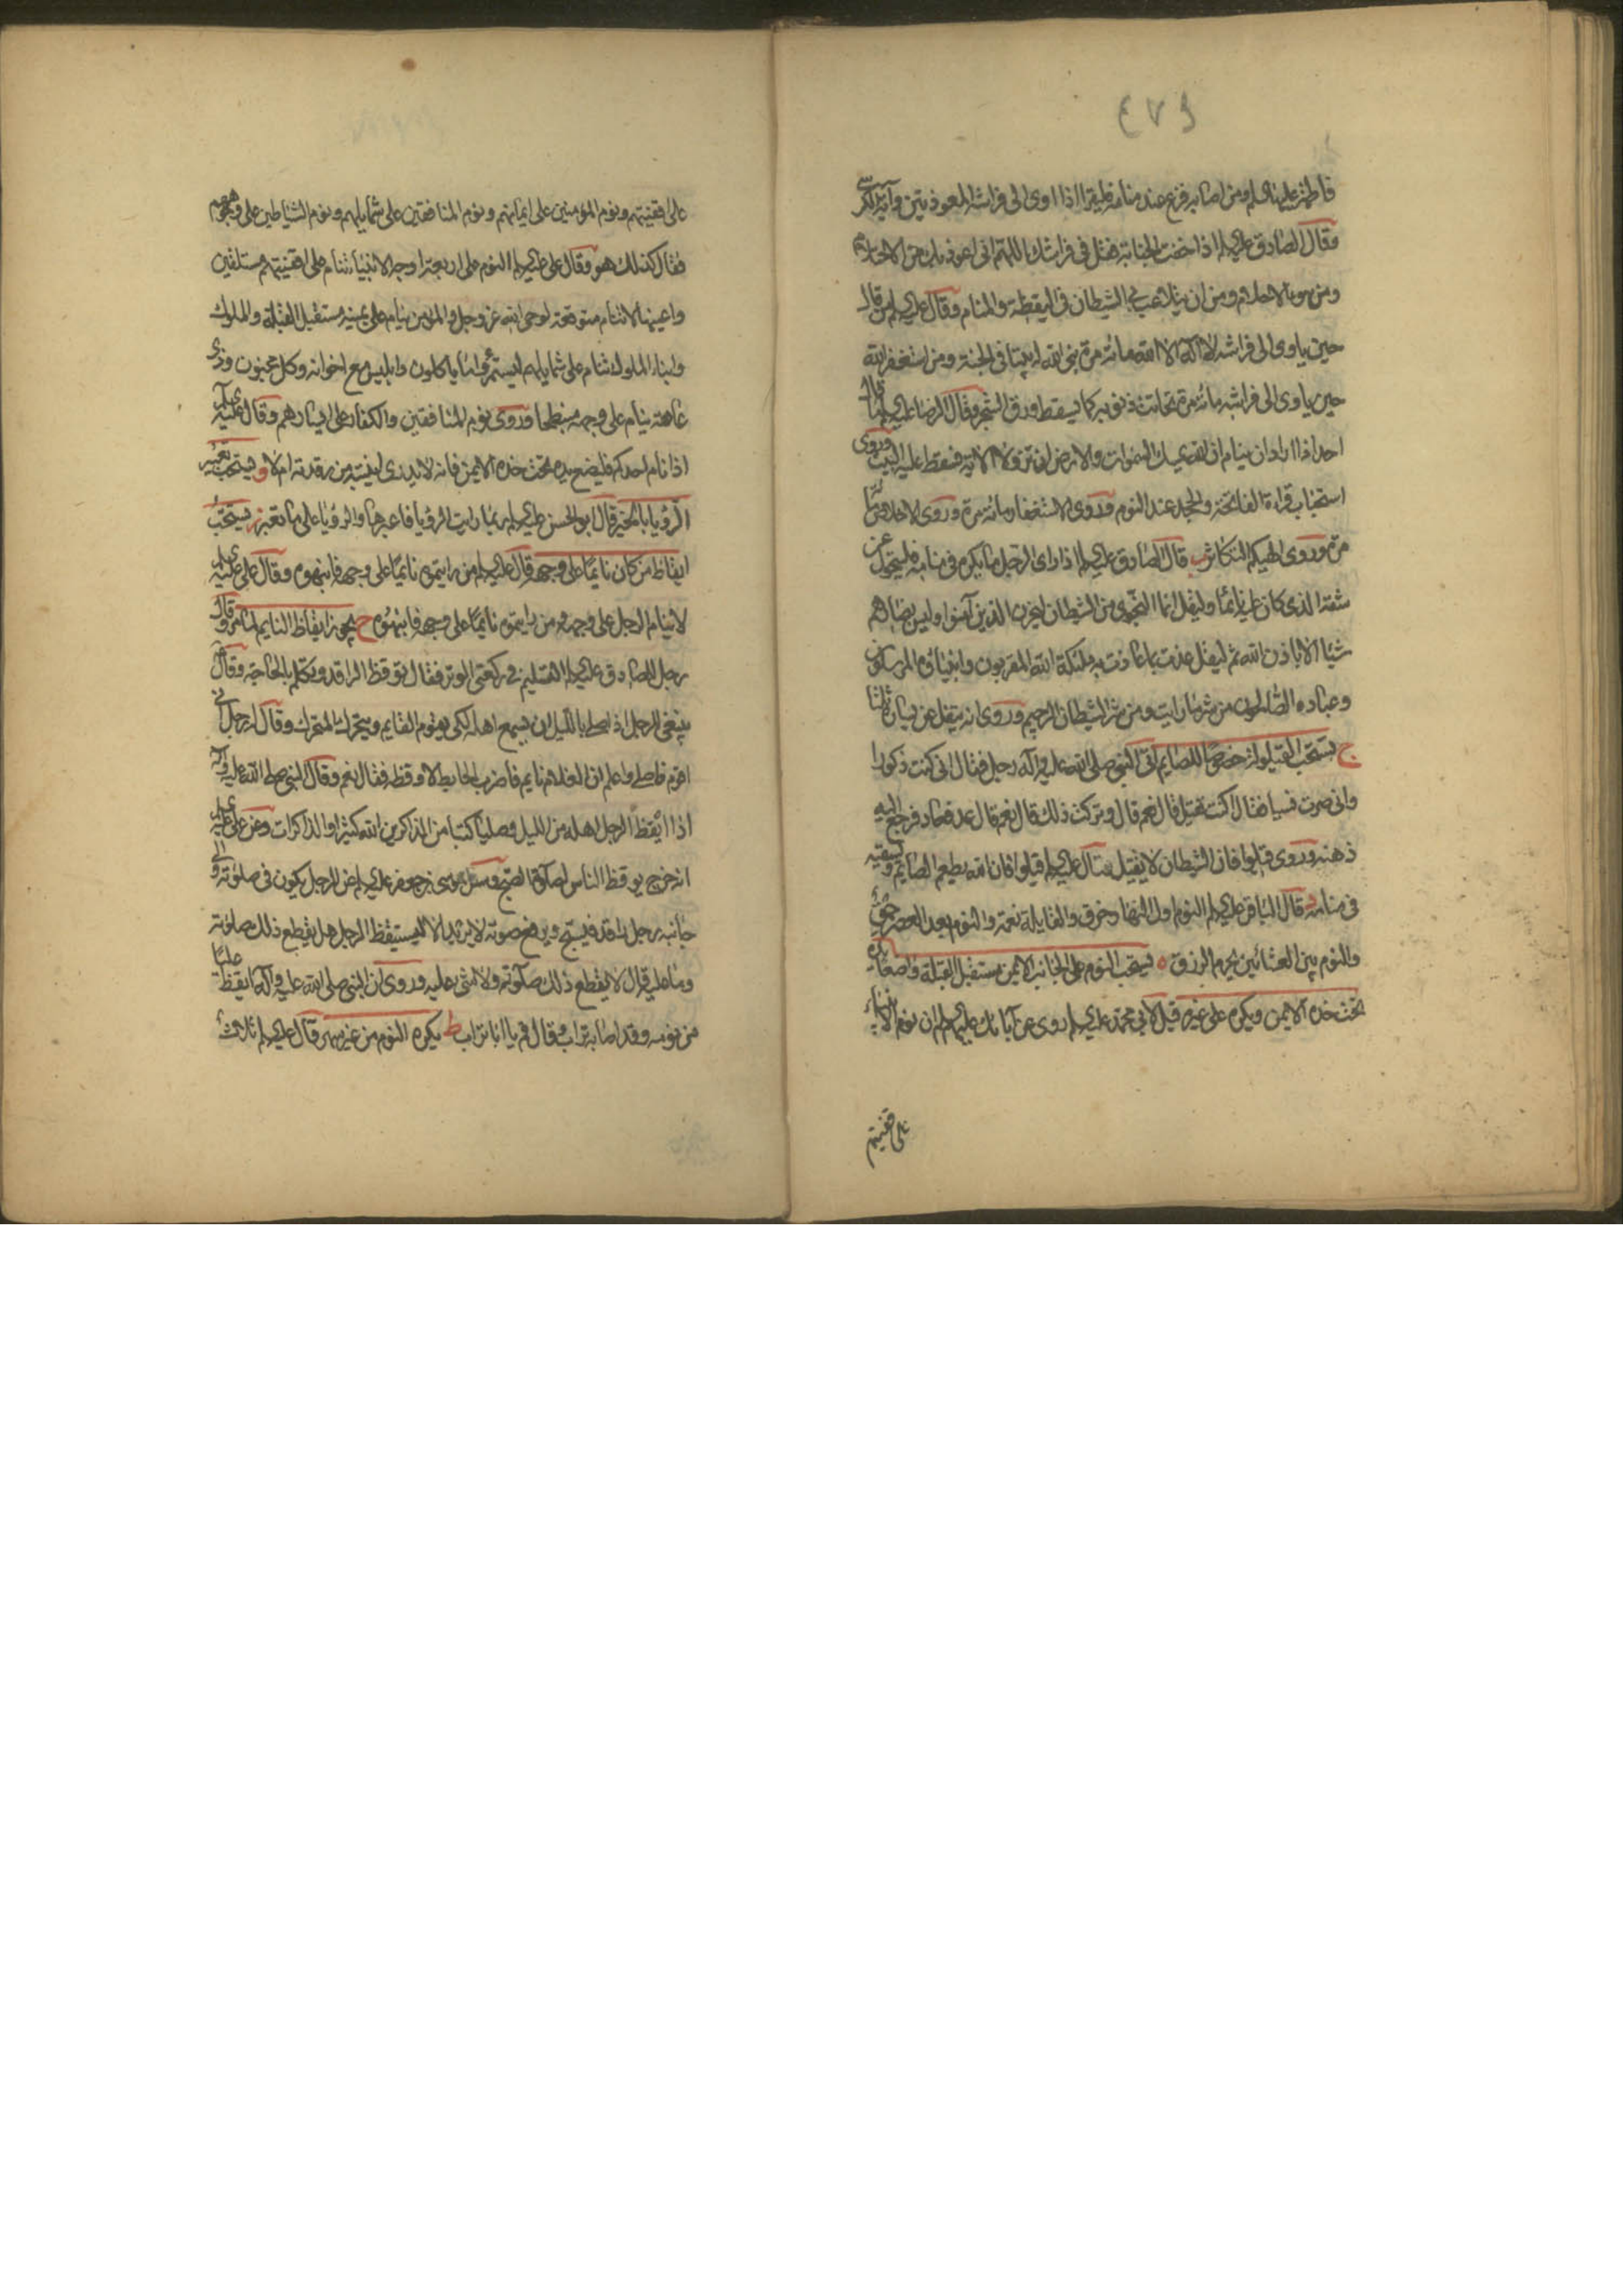 ٤٧٩
فاطمة عليها السلام ومن اصابه فزع عند منامه فليقرا اذا اوى الى فراشه المعوذتين وآية الكرسى
وقال الصادق عليه السلام اذا خفت الجنابة فقل فى فراشك اللهم انى اعوذ بك من الاحتلام
ومن سوء الاحلام ومن ان يتلاعب بى الشيطان فى اليقظة والمنام وقال عليه السلام من قال
حين ياوى الى فراشه لا اله الا الله مائة مرة بنى الله له بيتا فى الجنة ومن استغفر الله
حين ياوى الى فراشه مائة مرة تحاتت ذنوبه كما يسقط ورق الشجر وقال الرضا عليه السلام ما قال
احد اذا اراد ان ينام ان الله يمسك السموات والارض ان تزولا الاية فسقط عليه البيت وروى
استحباب قراءة الفاتحة والجحد عند النوم وروى الاستغفار مائة مرة وروى الاخلاص
مرة وروى الهيكم التكاثر ب قال الصادق عليه السلام اذا راى الرجل ما يكره فى منامه فليتحول عن
شقه الذى كان عليه نائما وليقل انما النجوى من الشيطان ليحزن الذين آمنوا وليس بضارهم
شيئا الا باذن الله ثم ليقل عذت بما عاذت به ملئكة الله المقربون وانبياؤه المرسلون
وعباده الصالحون من شر ما رايت ومن شر الشيطان الرجيم وروى انه يتفل عن يساره ثلثا
ج يستحب القيلولة خصوصا للصايم اتى النبى صلى الله عليه وآله رجل فقال انى كنت ذكورا
وانى صرت نسيا فقال اكنت تقيل قال نعم قال وتركت ذلك قال نعم قال عد فعاد فرجع اليه
ذهنه وروى قيلوا فان الشيطان لا يقيل وقال عليه السلام قيلوا فان الله يطعم الصايم ويسقيه
فى منامه د قال الباقر عليه السلام النوم اول النهار خرق والقايلة نعمة والنوم بعد العصر حمق
والنوم بين العشائين يحرم الرزق ه يستحب النوم على الجانب الايمن مستقبل القبلة واضعا يده
تحت خده الايمن ويكره على غيره قيل لابى محمد عليه السلام روى عن آبائك عليهم السلام ان نوم الانبياء
على اقفيتهم
على اقفيتهم ونوم المؤمنين على ايمانهم ونوم المنافقين على شمايلهم ونوم الشياطين على وجوههم
فقال كذلك هو وقال على عليه السلام النوم على اربعة اوجه الانبياء تنام على اقفيتهم مستلقين
واعينها لا تنام متوقعة لوحى الله عز وجل والمؤمن ينام على يمينه مستقبل القبلة والملوك
وابناء الملوك تنام على شمايلهم ليستمرؤا ما ياكلون وابليس مع اخوانه وكل مجنون وذى
عاهة ينام على وجهه منبطحا وروى نوم المنافقين والكفار على ايسارهم وقال على عليه السلام
اذا نام احدكم فليضع يده تحت خده الايمن فانه لا يدرى اينتبه من رقدته ام لا و يستحب تعبير
الرؤيا بالخير قال ابو الحسن عليه السلام ربما رايت الرؤيا فاعبرها والرؤيا على ما تعبر ز يستحب
ايقاظ من كان نايما على وجهه قال عليه السلام من رايتموه نايما على وجهه فانبهوه وقال على عليه السلام
لا ينام الرجل على وجهه ومن رايتموه نايما على وجهه فانبهوه ح يجوز ايقاظ النايم لما مر وقال
رجل للصادق عليه السلام التسليم فى ركعتى الوتر فقال توقظ الراقد وتكلم بالحاجة وقال
ينبغى للرجل اذا صلى بالليل ان يسمع اهله لكى يقوم القايم ويتحرك المتحرك وقال له رجل انى
اقوم فاصلى واعلم ان الغلام نايم فاضرب الحايط لاوقظه فقال نعم وقال النبى صلى الله عليه وآله
اذا ايقظ الرجل اهله من الليل وصليا كتبا من الذاكرين الله كثيرا والذاكرات وعن على عليه السلام
انه خرج يوقظ الناس لصلوة الصبح وسئل موسى بن جعفر عليه السلام عن الرجل يكون فى صلوته والى
جانبه رجل راقد فيسبح ويرفع صوته لا يريد الا ليستيقظ الرجل هل يقطع ذلك صلوته
وما عليه قال لا يقطع ذلك صلوته ولا شئ عليه وروى ان النبى صلى الله عليه وآله ايقظ عليا
من نومه وقد اصابه تراب فقال قم يا ابا تراب ط يكره النوم من غير سهر قال عليه السلام ثلاث